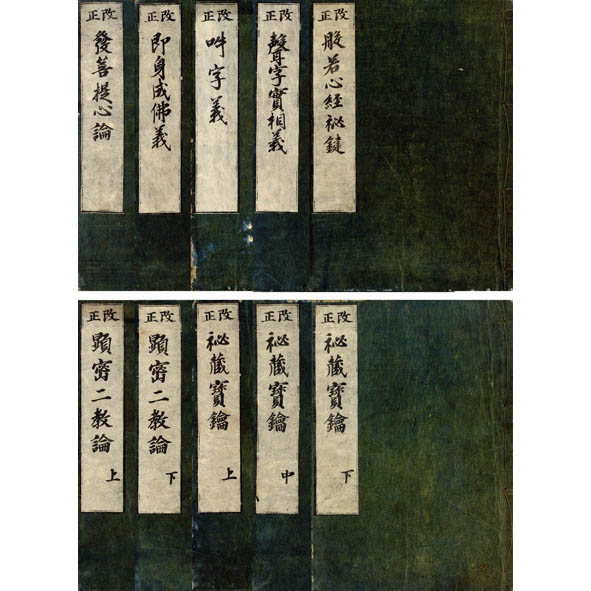 改正
般若心経祕鍵
改正
聲字實相義
改正
吽字義
改正
即身成佛義
改正
發菩提心論
改正
祕藏寶鑰 下
改正
祕藏寶鑰 中
改正
祕藏寶鑰 上
改正
顕密二教論 下
改正
顕密二教論 上